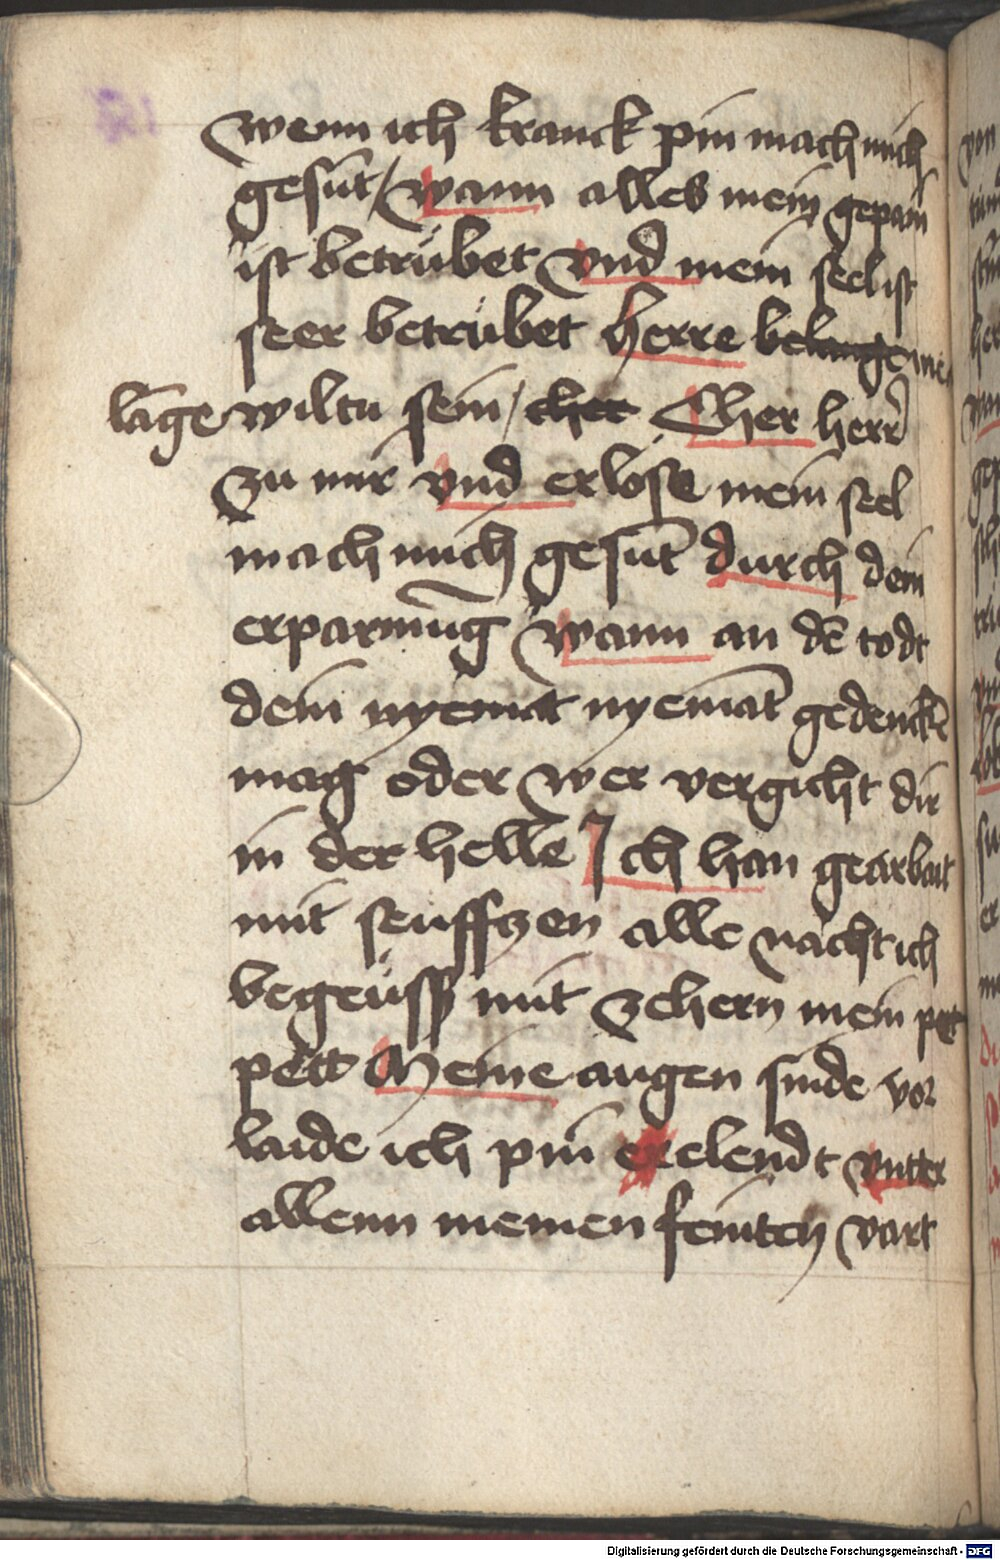 wenn ich kranck pin mach mich
gesūt / wann alles mein gepain
ist betrübet vnd mein sel ist
seer betrübet herre belange wie
lāge wiltu sein / cher Cher herr
zu mir vnd erlöse mein seel
mach mich gesūt durch dein
erparmūg wann an dē todt
dein nyemāt nyemāt gedenckē
mag oder wer vergicht dir
in der helle Ich han gearbait
mit seufftzen alle nacht ich
begeüss mit zehern mein pet
pett Meine augen sinde vor
laide ich pin er elendt vntter
allenn meinen feintten vart
Digitalisierung gefördert durch die Deutsche Forschungsgemeinschaft - DFG